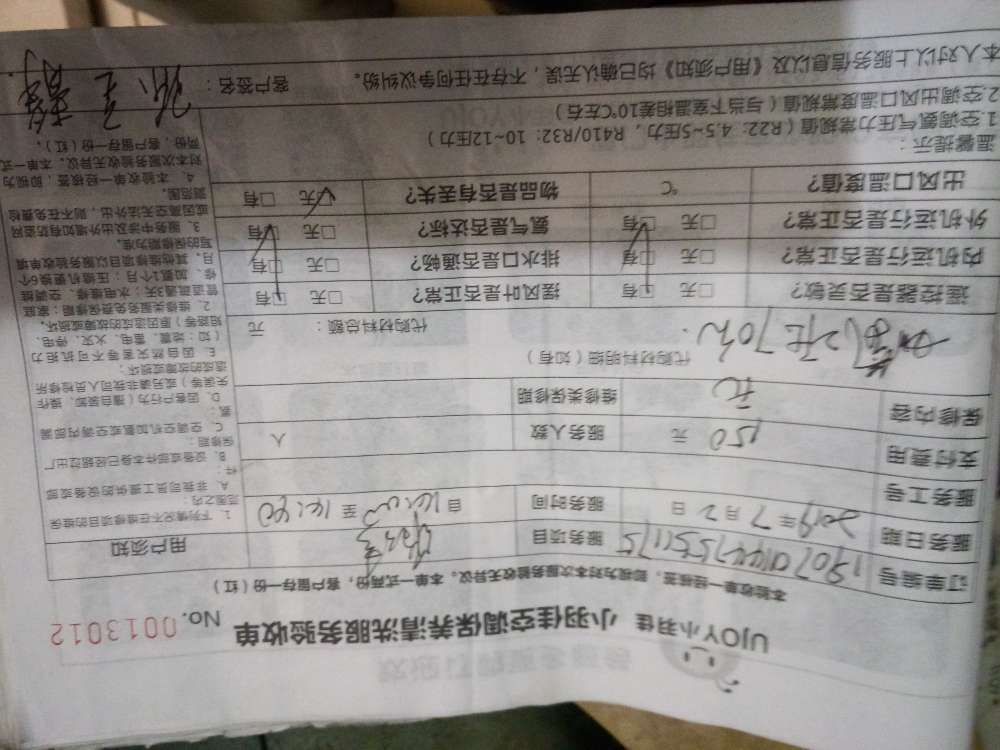 UJOY小羽佳 小羽佳空调保养清洗服务验收单 No. 0013012
本验收单一经核签，即视为对本次服务验收无异议。本单一式两份，客户留存一份（红）
订单编号 服务项目 用户须知
服务日期 2019年7月2日 服务时间 自 至
服务工号
支付费用 150 元 服务人数 人
保修内容 维修类保修期
代购材料明细（如有） 代购材料总额： 元
遥控器是否灵敏？ □无 □有 摆风叶是否正常？ □无 □有
内机运行是否正常？ □无 □有 排水口是否通畅？ □无 □有
外机运行是否正常？ □无 □有 氨气是否达标？ □无 □有
出风口温度值？ ℃ 物品是否有丢失？ □无 □有
1. 下列情况不在维修项目的维保
范围之内：
A. 非我司员工提供的设备或部
件；
B. 设备或部件本身已经超过出厂
保修期；
C. 空调空机加氨或空调内部漏
氨；
D. 因客户行为（擅自装卸、操作
失误等）或另请非我司人员检修所
造成的故障或损坏；
E. 因自然灾害等不可抗拒力
（如：地震、雷电、火灾、停电、
短路等）原因造成的故障或损坏。
2. 维修类服务免费保修期：家庭
管道疏通3天；水电维修、空调维
修、加氨1个月；压缩机更换6个
月。其他维修项目以服务验收单填
写的保修期为准。
3. 服务中涉及出外墙如有防盗网
或因高空无法外出，则不在免费检
测范围。
4. 本验收单一经核签，即视为
对本次服务验收无异议。本单一式
两份，客户留存一份（红）。
温馨提示：
1.空调氨气压力常规值（R22：4.5~5压力，R410/R32：10~12压力）
2.空调出风口温度常规值（与当下室温相差10℃左右）
本人对以上服务信息以及《用户须知》均已确认无误，不存在任何争议纠纷。 客户签名：